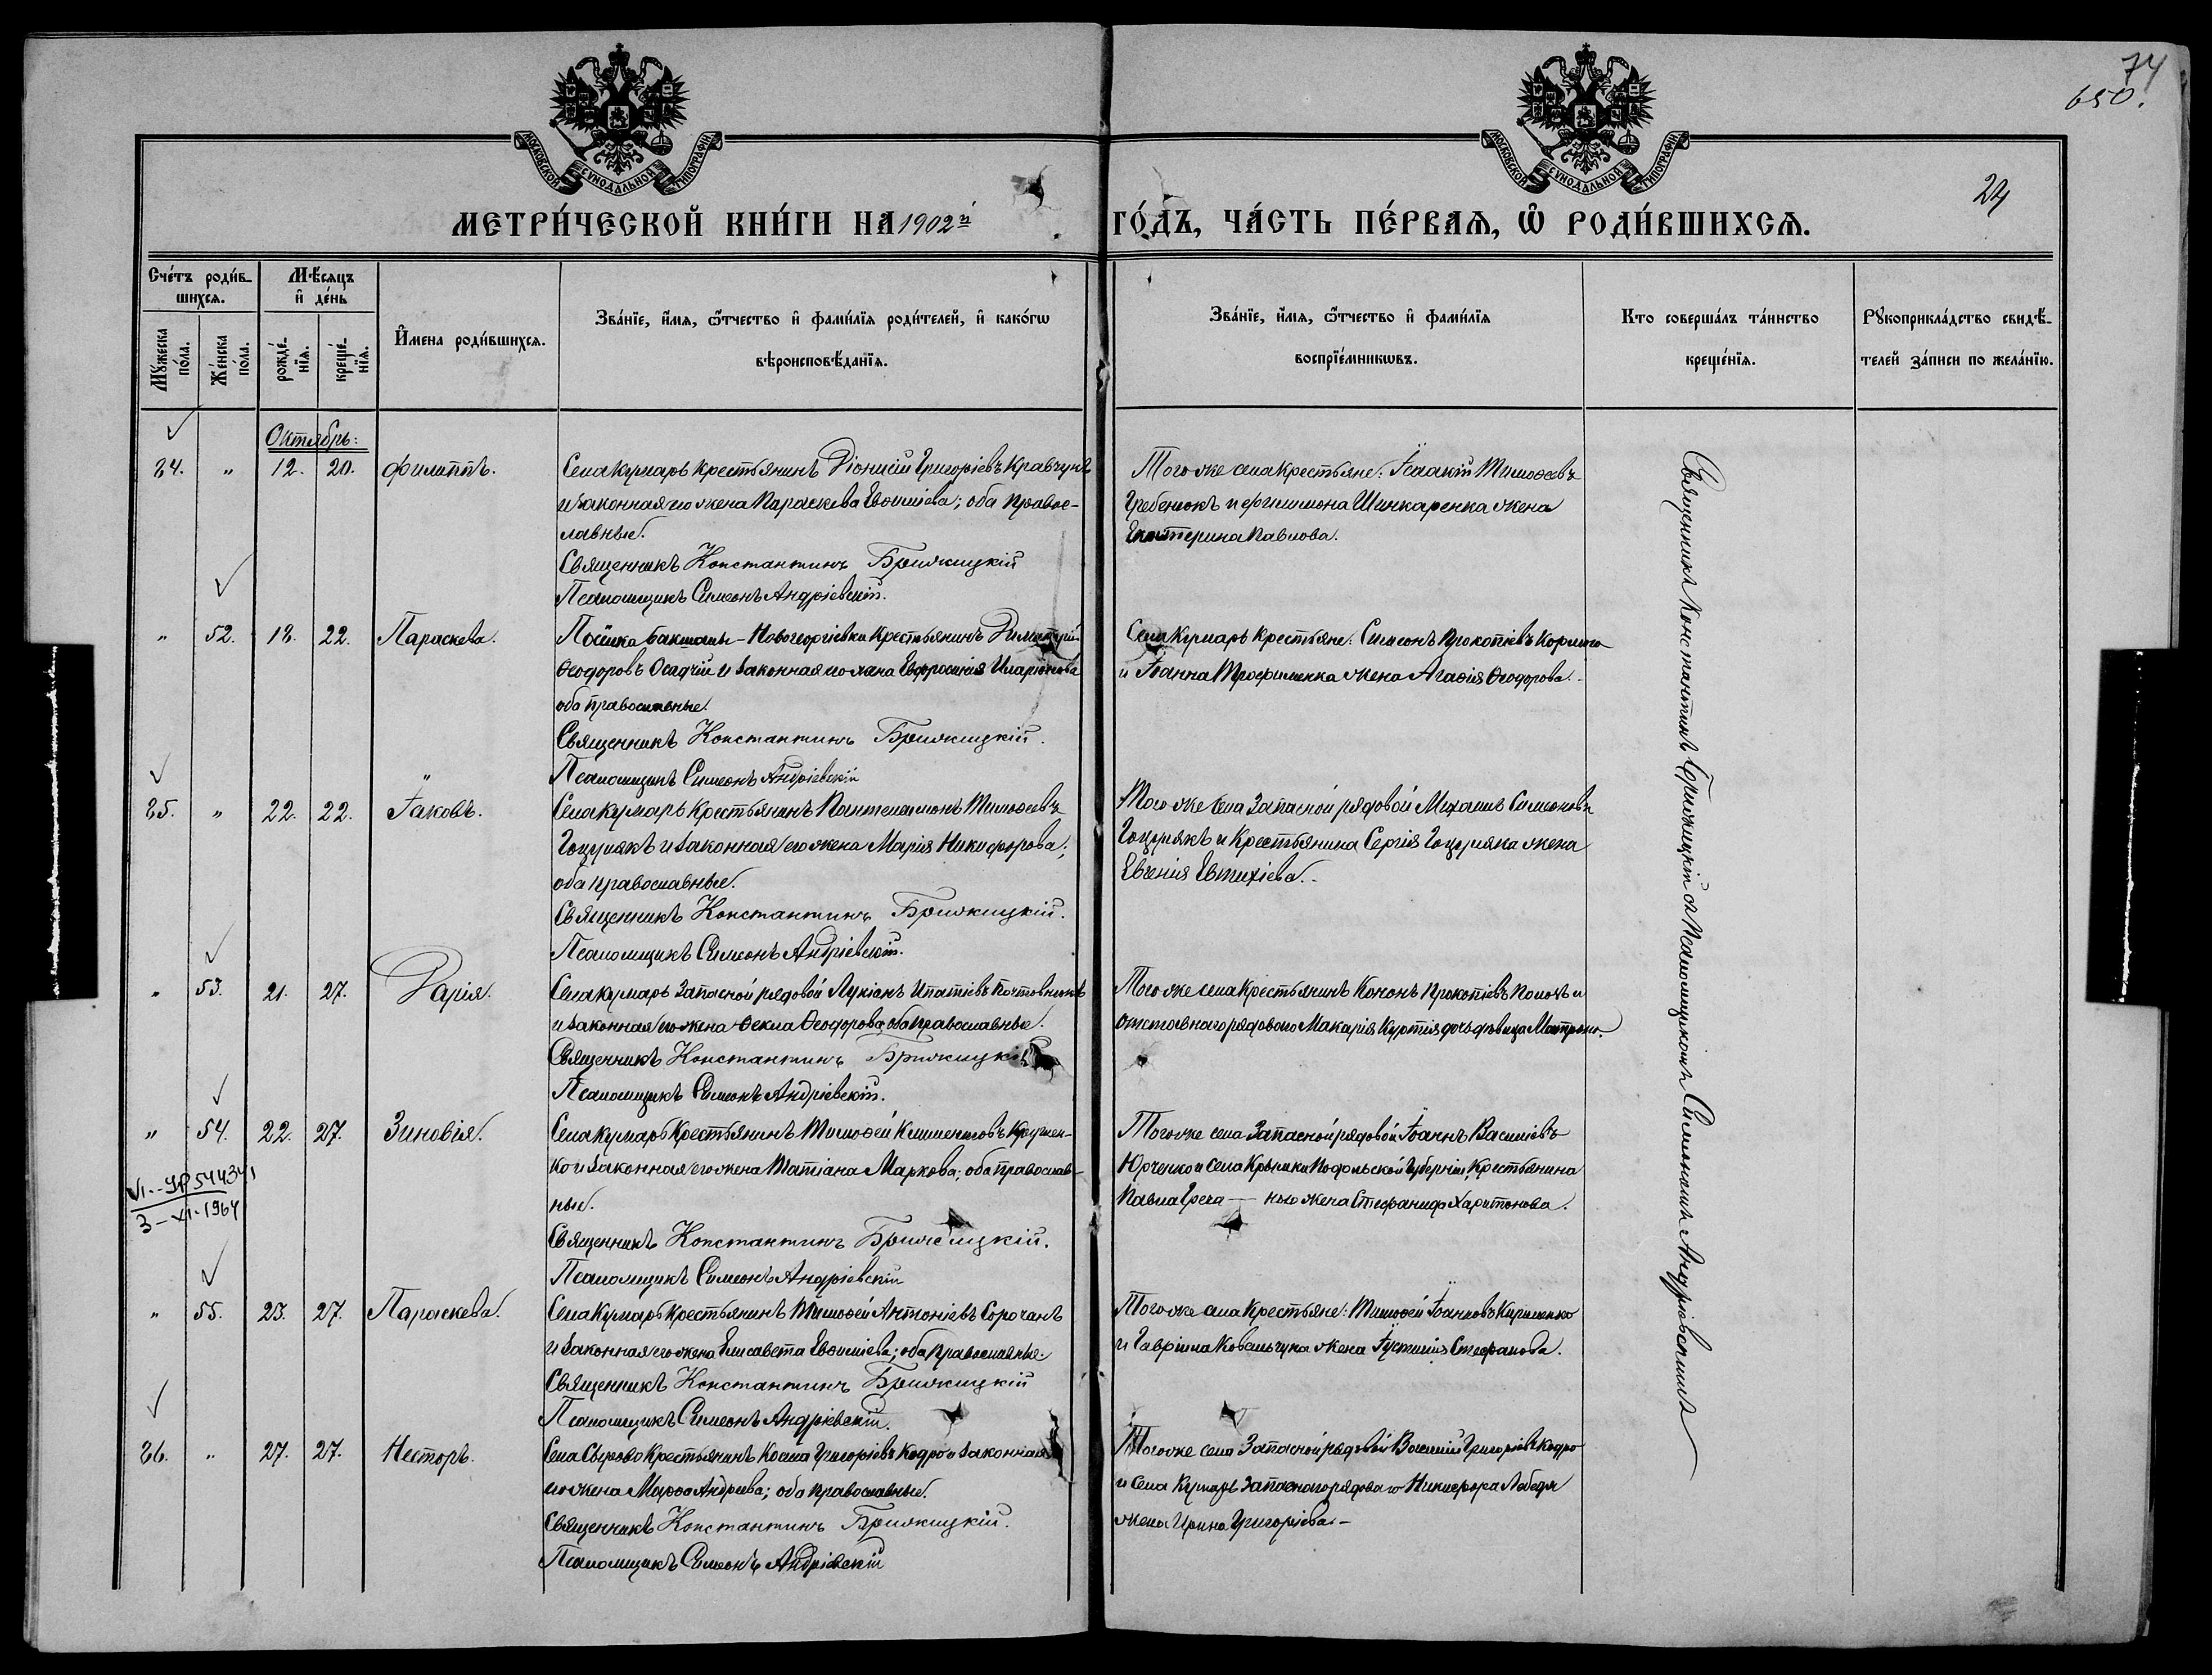 74
650.
МОСКОВСКОЙ СѴНОДАЛЬНОЙ ТИПОГРАФІИ
МОСКОВСКОЙ СѴНОДАЛЬНОЙ ТИПОГРАФІИ
24
МЕТРИ́ЧЕСКОЙ КНИ́ГИ НА 1902й
ГО́ДЪ, ЧА́СТЬ ПЕ́РВАѦ, Ѡ҆ РОДИ́ВШИХСѦ.
Сче́тъ роди́в-
шихсѧ.
Мѣ́сѧцъ
и҆ де́нь
Мꙋжеска по́ла.
Же́нска по́ла.
рожде́-нїѧ.
креще́-нїѧ.
И҆мена роди́вшихсѧ.
Зва́нїе, и҆́мѧ, ѻ҆́тчество и҆ фами́лїѧ роди́телей, и҆ како́гѡ
вѣроисповѣ́данїѧ.
Зва́нїе, и҆́мѧ, ѻ҆́тчество и҆ фами́лїѧ
воспрїе́мникѡвъ.
Кто соверша́лъ та́инство
креще́нїѧ.
Рꙋкоприкла́дство свидѣ́-
телей за́писи по жела́нїю.
Октябрь:
84. „ 12. 20. Филиппъ.
Села Кумаръ крестьянинъ Діонисій Григоріевъ Кравчукъ
и законная его жена Параскева Евѳиміева; оба правос-
лавные.
Священникъ Константинъ Брижицкій
Псаломщикъ Симеонъ Андріевскій.
Того же села крестьяне: Исаакій Тимоѳеевъ
Гребенюкъ и Шинкаренка жена
Екатерина Павлова.
„ 52. 18. 22. Параскева.
Посёлка Бакшалы-Новогеоргіевки крестьянинъ Димитрій
Ѳеодоровъ Осадчій и законная его жена Евфросинія Иларіонова
оба православные.
Священникъ Константинъ Брижицкій.
Псаломщикъ Симеонъ Андріевскій
Села Кумаръ крестьяне: Симеонъ Прокопіевъ
и Іоанна Трофименка жена Агаѳія Ѳеодорова.-
85. „ 22. 22. Іаковъ.
Села Кумаръ крестьянинъ Пантелеимонъ Тимоѳеевъ
Гоцулякъ и законная его жена Марія Никифорова;
оба православные.
Священникъ Константинъ Брижицкій.
Псаломщикъ Симеонъ Андріевскій.
Того же села запасной рядовой Михаилъ Симеоновъ
Гоцулякъ и крестьянина Сергія Гоцуляка жена
Евгенія Евтихіева.-
„ 53. 21. 27. Дарія.
Села Кумаръ запасной рядовой Лукіанъ Ипатіевъ
и законная его жена Ѳекла Ѳеодорова; оба православные.
Священникъ Константинъ Брижицкій
Псаломщикъ Симеонъ Андріевскій.
Того же села крестьянинъ Кононъ Прокопіевъ и
отставнаго рядового Макарія дочь дѣвица Матрона.
„ 54. 22. 27. Зиновія.
Села Кумаръ крестьянинъ Тимоѳей Климентовъ
ко и законная его жена Татіана Маркова; оба православ-
ные.
Священникъ Константинъ Брижицкій.
Псаломщикъ Симеонъ Андріевскій
Того же села запасной рядовой Іоаннъ Василіевъ
Юрченко и села Крыники Подольской губерніи, крестьянина
Павла жена Стефанида Харитонова.
3-XI-1964
„ 55. 23. 27. Параскева.
Села Кумаръ крестьянинъ Тимоѳей Антоніевъ Сорочанъ
и законная его жена Елисавета Евѳиміева; оба православные.
Священникъ Константинъ Брижицкій
Псаломщикъ Симеонъ Андріевскій.
Того же села крестьяне: Тимоѳей Іоанновъ Кириленко
и Гавріила Ковальчука жена Іустинія Стефанова.
86. „ 27. 27. Несторъ.
Села Сырово крестьянинъ Косма Григоріевъ Кодро и законная
его жена Марѳа Андреева; оба православные.
Священникъ Константинъ Брижицкій.
Псаломщикъ Симеонъ Андріевскій
Того же села запасной рядовой Василій Григоріевъ Кодро
и села Кумаръ запаснаго рядового Никифора Лебедя
жена Ирина Григоріева.-
Священникъ Константинъ Брижицкій съ псаломщикомъ Симеономъ Андріевскимъ